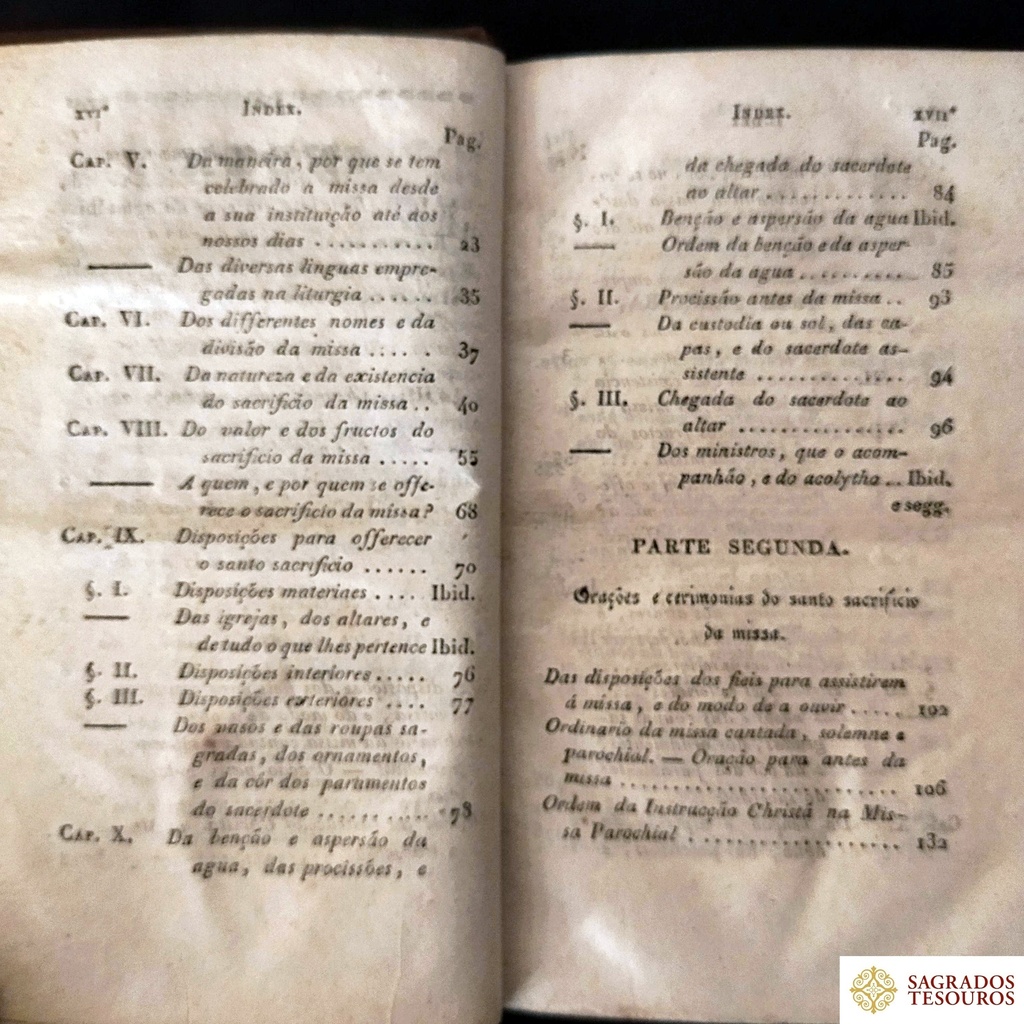 XVI*
INDEX.
Pag.
CAP. V. Da maneira, por que se tem
celebrado a missa desde
a sua instituição até aos
nossos dias ........... 23
—— Das diversas linguas empre-
gadas na liturgia ...... 35
CAP. VI. Dos differentes nomes e da
divisão da missa ...... 37
CAP. VII. Da natureza e da existencia
do sacrificio da missa .. 40
CAP. VIII. Do valor e dos fructos do
sacrificio da missa ..... 55
—— A quem, e por quem se offe-
rece o sacrificio da missa? 68
CAP. IX. Disposições para offerecer
o santo sacrificio ...... 70
§. I. Disposições materiaes .... Ibid.
—— Das igrejas, dos altares, e
de tudo o que lhes pertence Ibid.
§. II. Disposições interiores ..... 76
§. III. Disposições exteriores .... 77
—— Dos vasos e das roupas sa-
gradas, dos ornamentos,
e da côr dos paramentos
do sacerdote ........... 78
CAP. X. Da benção e aspersão da
agua, das procissões, e
INDEX.
XVII*
Pag.
da chegada do sacerdote
ao altar .............. 84
§. I. Benção e aspersão da agua Ibid.
—— Ordem da benção e da asper-
são da agua ........... 85
§. II. Procissão antes da missa .. 93
—— Da custodia ou sol, das ca-
pas, e do sacerdote as-
sistente .............. 94
§. III. Chegada do sacerdote ao
altar ................. 96
—— Dos ministros, que o acom-
panhão, e do acolytho .. Ibid.
e segg.
PARTE SEGUNDA.
Orações e cerimonias do santo sacrificio
da missa.
Das disposições dos fieis para assistirem
á missa, e do modo de a ouvir ..... 102
Ordinario da missa cantada, solemne e
parochial. — Oração para antes da
missa ........................... 106
Ordem da Instrucção Christã na Mis-
sa Parochial ..................... 132
SAGRADOS
TESOUROS